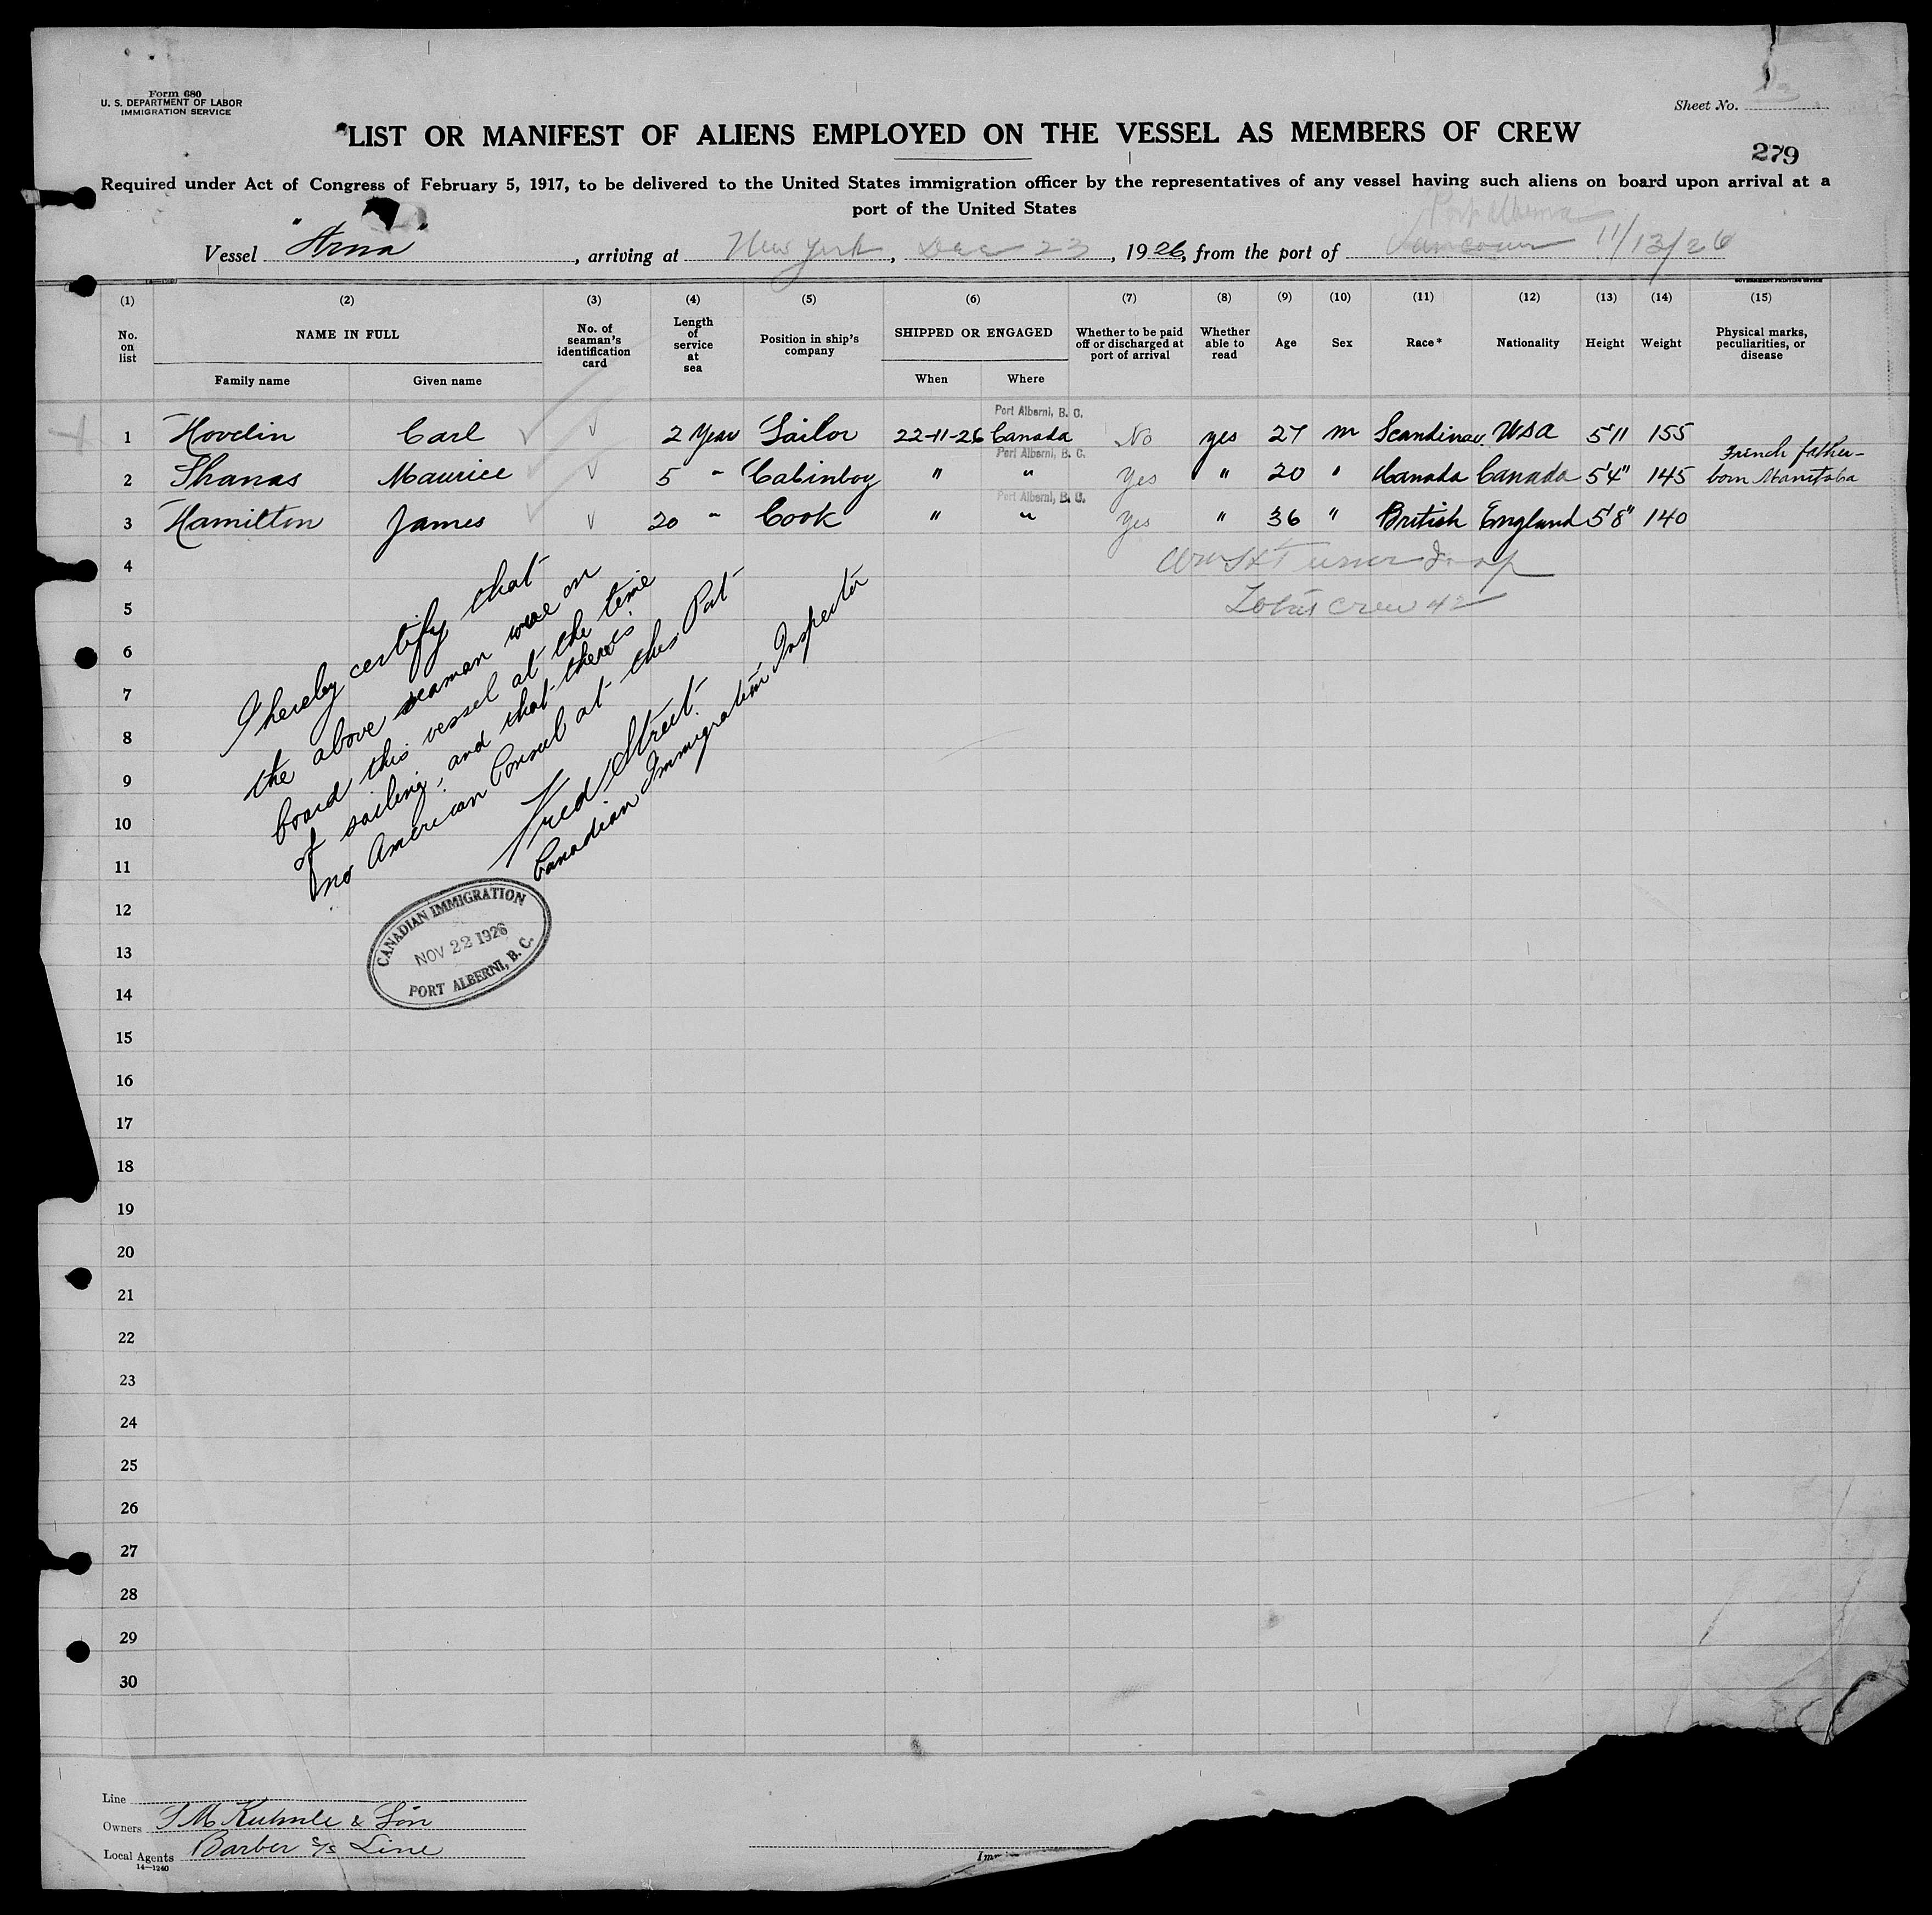 Form 680
U. S. DEPARTMENT OF LABOR
IMMIGRATION SERVICE
Sheet No.
LIST OR MANIFEST OF ALIENS EMPLOYED ON THE VESSEL AS MEMBERS OF CREW
279
Required under Act of Congress of February 5, 1917, to be delivered to the United States immigration officer by the representatives of any vessel having such aliens on board upon arrival at a
port of the United States
Port Alberni
Vessel "Arna", arriving at New York, Dec 23, 1926, from the port of Vancouver 11/13/26
GOVERNMENT PRINTING OFFICE
(1) (2) (3) (4) (5) (6) (7) (8) (9) (10) (11) (12) (13) (14) (15)
No. on list
NAME IN FULL
Family name Given name
No. of seaman's identification card
Length of service at sea
Position in ship's company
SHIPPED OR ENGAGED
When Where
Whether to be paid off or discharged at port of arrival
Whether able to read
Age
Sex
Race*
Nationality
Height
Weight
Physical marks, peculiarities, or disease
Port Alberni, B. C.
1 Hovelin Carl √ 2 Year Sailor 22-11-26 Canada No yes 27 m Scandinav. USA 5'11 155
Port Alberni, B. C.
French father-
2 Thanas Maurice √ 5 " Cabinboy " " Yes " 20 " Canada Canada 5'4" 145 born Manitoba
Port Alberni, B. C.
3 Hamilton James √ 20 " Cook " " Yes " 36 " British England 5'8" 140
4
Turner
5
Total crew 42
6
7
8
9
10
11
12
13
14
15
16
17
18
19
20
21
22
23
24
25
26
27
28
29
30
I hereby certify that
the above seaman were on
board this vessel at the time
of sailing, and that there is
no American Consul at this Port
Fred Street.
Canadian Immigration Inspector
CANADIAN IMMIGRATION
NOV 22 1926
PORT ALBERNI, B. C.
Line
Owners S M Kuhnle & Son
Local Agents Barber S/S Line
14—1240